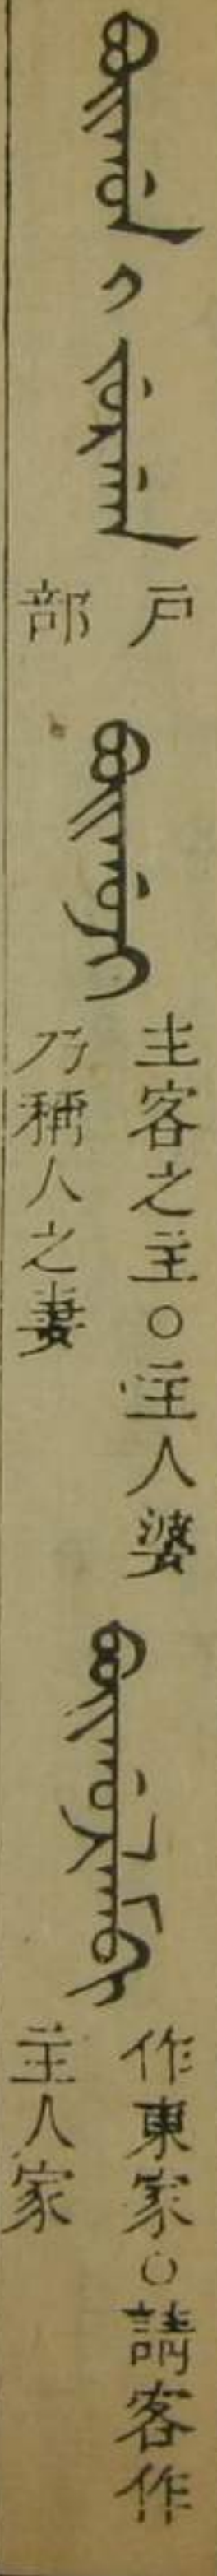 ᠪᠣᡳᡤᠣᠨ ᡳ ᠵᡠᡵᡤᠠᠨ
户
部
ᠪᠣᡳᡤᠣᠵᡳ
主客之主○主人婆
乃稱人之妻
ᠪᠣᡳᡤᠣᠵᡳᠯᠠᠮᠪᡳ
作東家○請客作
主人家